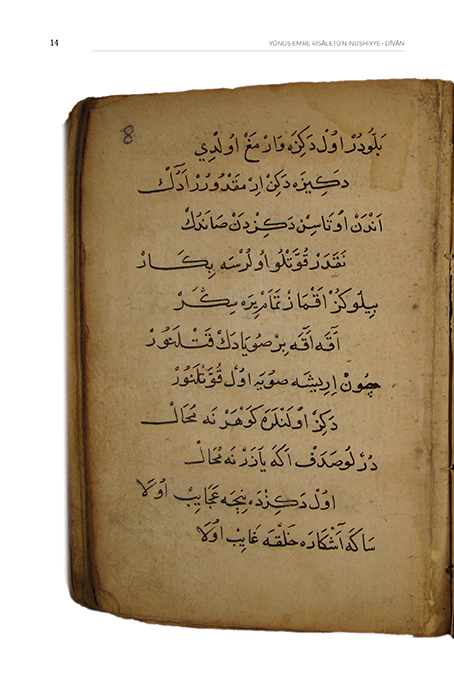 14
YÛNUS EMRE RİSÂLETÜ'N-NUSHİYYE - DÎVÂN
8
بَلُودُرْ اُولْ دَكِزَه وَارْمَغْ اُولْدِي
دَكِيزَه دَكِنْ اِرْمَقْدُورُرْ آدُكْ
اَنْدَنْ اُوتَاسِنْ دَكِزْدَنْ صَانْدُكْ
نَقَدَرْ قُوَّتْلُو اُولُرْسَه بِكَارْ
بِيلُوكُزْ اَقْمَازْ تَمَامْ يِرَه سِكَرْ
آقَه آقَه بِرْ صُويَادَكْ قَتْلَنُورْ
چون اِرِيشَه صُويَه اُولْ قُوَّتْلَنُورْ
دَكِزْ اُولَنْلَرَه كَوْهَرْ نَه مُحَالْ
دُرْلُو صَدَفْ اَكَه يَازَرْ نَه مُحَالْ
اُولْ دَكِزْدَه نِيجَه عَجَايِبْ اُولَا
سَاكَه آشْكَارَه خَلْقَه غَايِبْ اُولَا